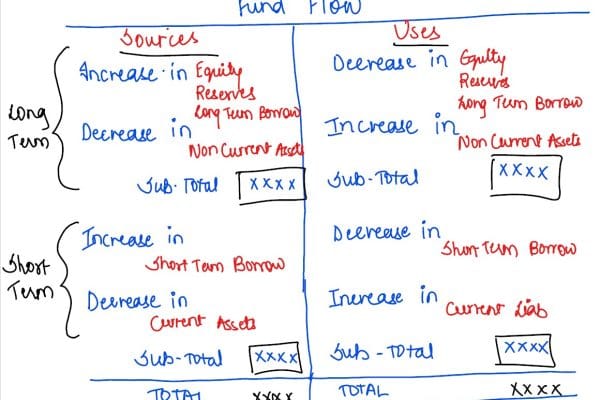 Fund Flow
Sources
Uses
Long
Term
Increase in Equity
Reserves
Long Term Borrow
Decrease in
Non Current Assets
Sub-Total XXXX
Decrease in Equity
Reserves
Long Term Borrow
Increase in
Non Current Assets
Sub-Total XXXX
Short
Term
Increase in
Short Term Borrow
Decrease in
Current Assets
Sub-Total XXXX
Decrease in
Short Term Borrow
Increase in
Current Liab
Sub-Total XXXX
TOTAL XXXX
TOTAL XXXX